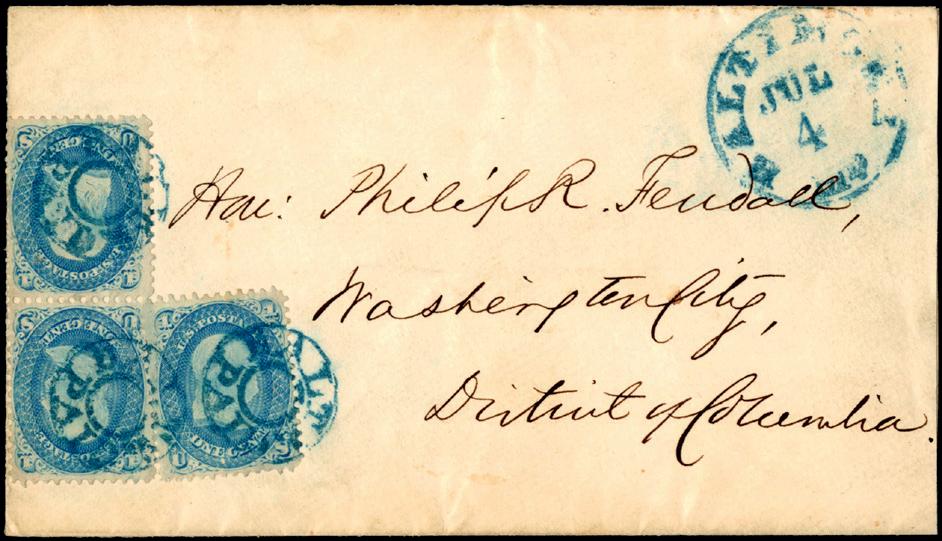 BALTIMORE
JUL
4
Hon: Philip R. Fendall,
Washington City,
District of Columbia.
U.S. POSTAGE
ONE CENT
U.S. POSTAGE
ONE CENT
U.S. POSTAGE
ONE CENT
PAID